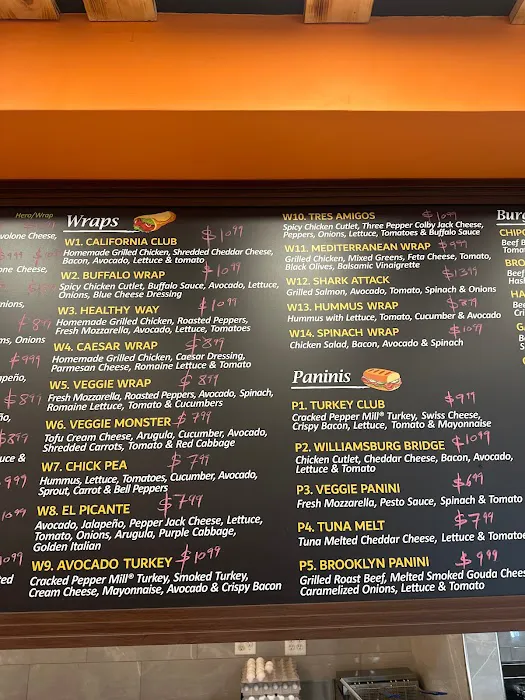 Hero/Wrap
volone Cheese,
one Cheese,
nions,
ms, Onions
$999
peño,
$899
uce &
999
1099
1099
Wraps
W1. CALIFORNIA CLUB $1099
Homemade Grilled Chicken, Shredded Cheddar Cheese,
Bacon, Avocado, Lettuce & tomato
W2. BUFFALO WRAP $1099
Spicy Chicken Cutlet, Buffalo Sauce, Avocado, Lettuce,
Onions, Blue Cheese Dressing
W3. HEALTHY WAY $1099
Homemade Grilled Chicken, Roasted Peppers,
Fresh Mozzarella, Avocado, Lettuce, Tomatoes
W4. CAESAR WRAP $899
Homemade Grilled Chicken, Caesar Dressing,
Parmesan Cheese, Romaine Lettuce & Tomato
W5. VEGGIE WRAP $899
Fresh Mozzarella, Roasted Peppers, Avocado, Spinach,
Romaine Lettuce, Tomato & Cucumbers
W6. VEGGIE MONSTER $799
Tofu Cream Cheese, Arugula, Cucumber, Avocado,
Shredded Carrots, Tomato & Red Cabbage
W7. CHICK PEA $799
Hummus, Lettuce, Tomatoes, Cucumber, Avocado,
Sprout, Carrot & Bell Peppers
W8. EL PICANTE $799
Avocado, Jalapeño, Pepper Jack Cheese, Lettuce,
Tomato, Onions, Arugula, Purple Cabbage,
Golden Italian
W9. AVOCADO TURKEY $1099
Cracked Pepper Mill® Turkey, Smoked Turkey,
Cream Cheese, Mayonnaise, Avocado & Crispy Bacon
W10. TRES AMIGOS $1099
Spicy Chicken Cutlet, Three Pepper Colby Jack Cheese,
Peppers, Onions, Lettuce, Tomatoes & Buffalo Sauce
W11. MEDITERRANEAN WRAP $999
Grilled Chicken, Mixed Greens, Feta Cheese, Tomato,
Black Olives, Balsamic Vinaigrette
W12. SHARK ATTACK $1399
Grilled Salmon, Avocado, Tomato, Spinach & Onions
W13. HUMMUS WRAP $899
Hummus with Lettuce, Tomato, Cucumber & Avocado
W14. SPINACH WRAP $1099
Chicken Salad, Bacon, Avocado & Spinach
Paninis
P1. TURKEY CLUB $999
Cracked Pepper Mill® Turkey, Swiss Cheese,
Crispy Bacon, Lettuce, Tomato & Mayonnaise
P2. WILLIAMSBURG BRIDGE $1099
Chicken Cutlet, Cheddar Cheese, Bacon, Avocado,
Lettuce & Tomato
P3. VEGGIE PANINI $699
Fresh Mozzarella, Pesto Sauce, Spinach & Tomato
P4. TUNA MELT $799
Tuna Melted Cheddar Cheese, Lettuce & Tomatoe
P5. BROOKLYN PANINI $999
Grilled Roast Beef, Melted Smoked Gouda Chees
Caramelized Onions, Lettuce & Tomato
Burg
CHIPO
Beef B
Toma
BRO
Beef
Hash
HA
Bee
Cri